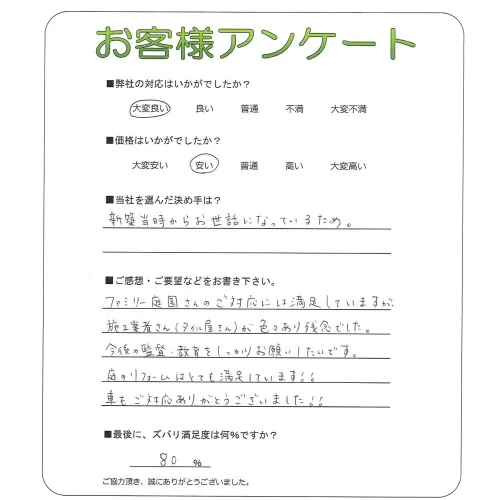 お客様アンケート
■弊社の対応はいかがでしたか？
大変良い 良い 普通 不満 大変不満
■価格はいかがでしたか？
大変安い 安い 普通 高い 大変高い
■当社を選んだ決め手は？
新築当時からお世話になっているため。
■ご感想・ご要望などをお書き下さい。
ファミリー庭園さんのご対応には満足していますが、
施工業者さん(タイル屋さん)が色々あり残念でした。
今後の監督・教育をしっかりお願いしたいです。
庭のリフォームはとても満足しています!!
車もご対応ありがとうございました!!
■最後に、ズバリ満足度は何%ですか？
80 %
ご協力頂き、誠にありがとうございました。